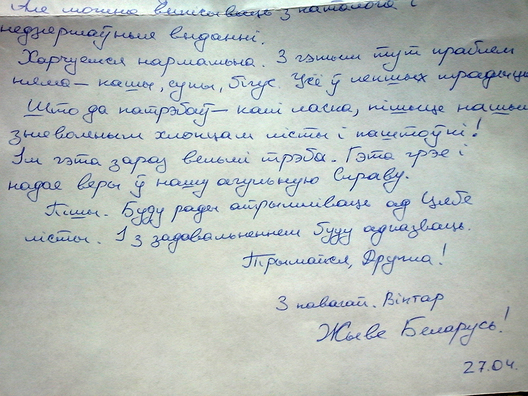 Але можна выпісваць з каталога і
недзяржаўныя выданні.
Харчуемся нармальна. З гэтым тут праблем
няма – кашы, супы, бігус. Усё ў лепшых традыцы
Што да патрэбаў – калі ласка, пішыце нашым
зняволеным хлопцам лісты і паштоўкі!
Ім гэта зараз вельмі трэба. Гэта грэе і
надае веры ў нашу агульную справу.
Пішы. Буду рады атрымліваць ад Цябе
лісты. І з задавальненнем буду адпісваць.
Трымайся, Дружа!
З павагай. Віктар
Жыве Беларусь!
27.04.